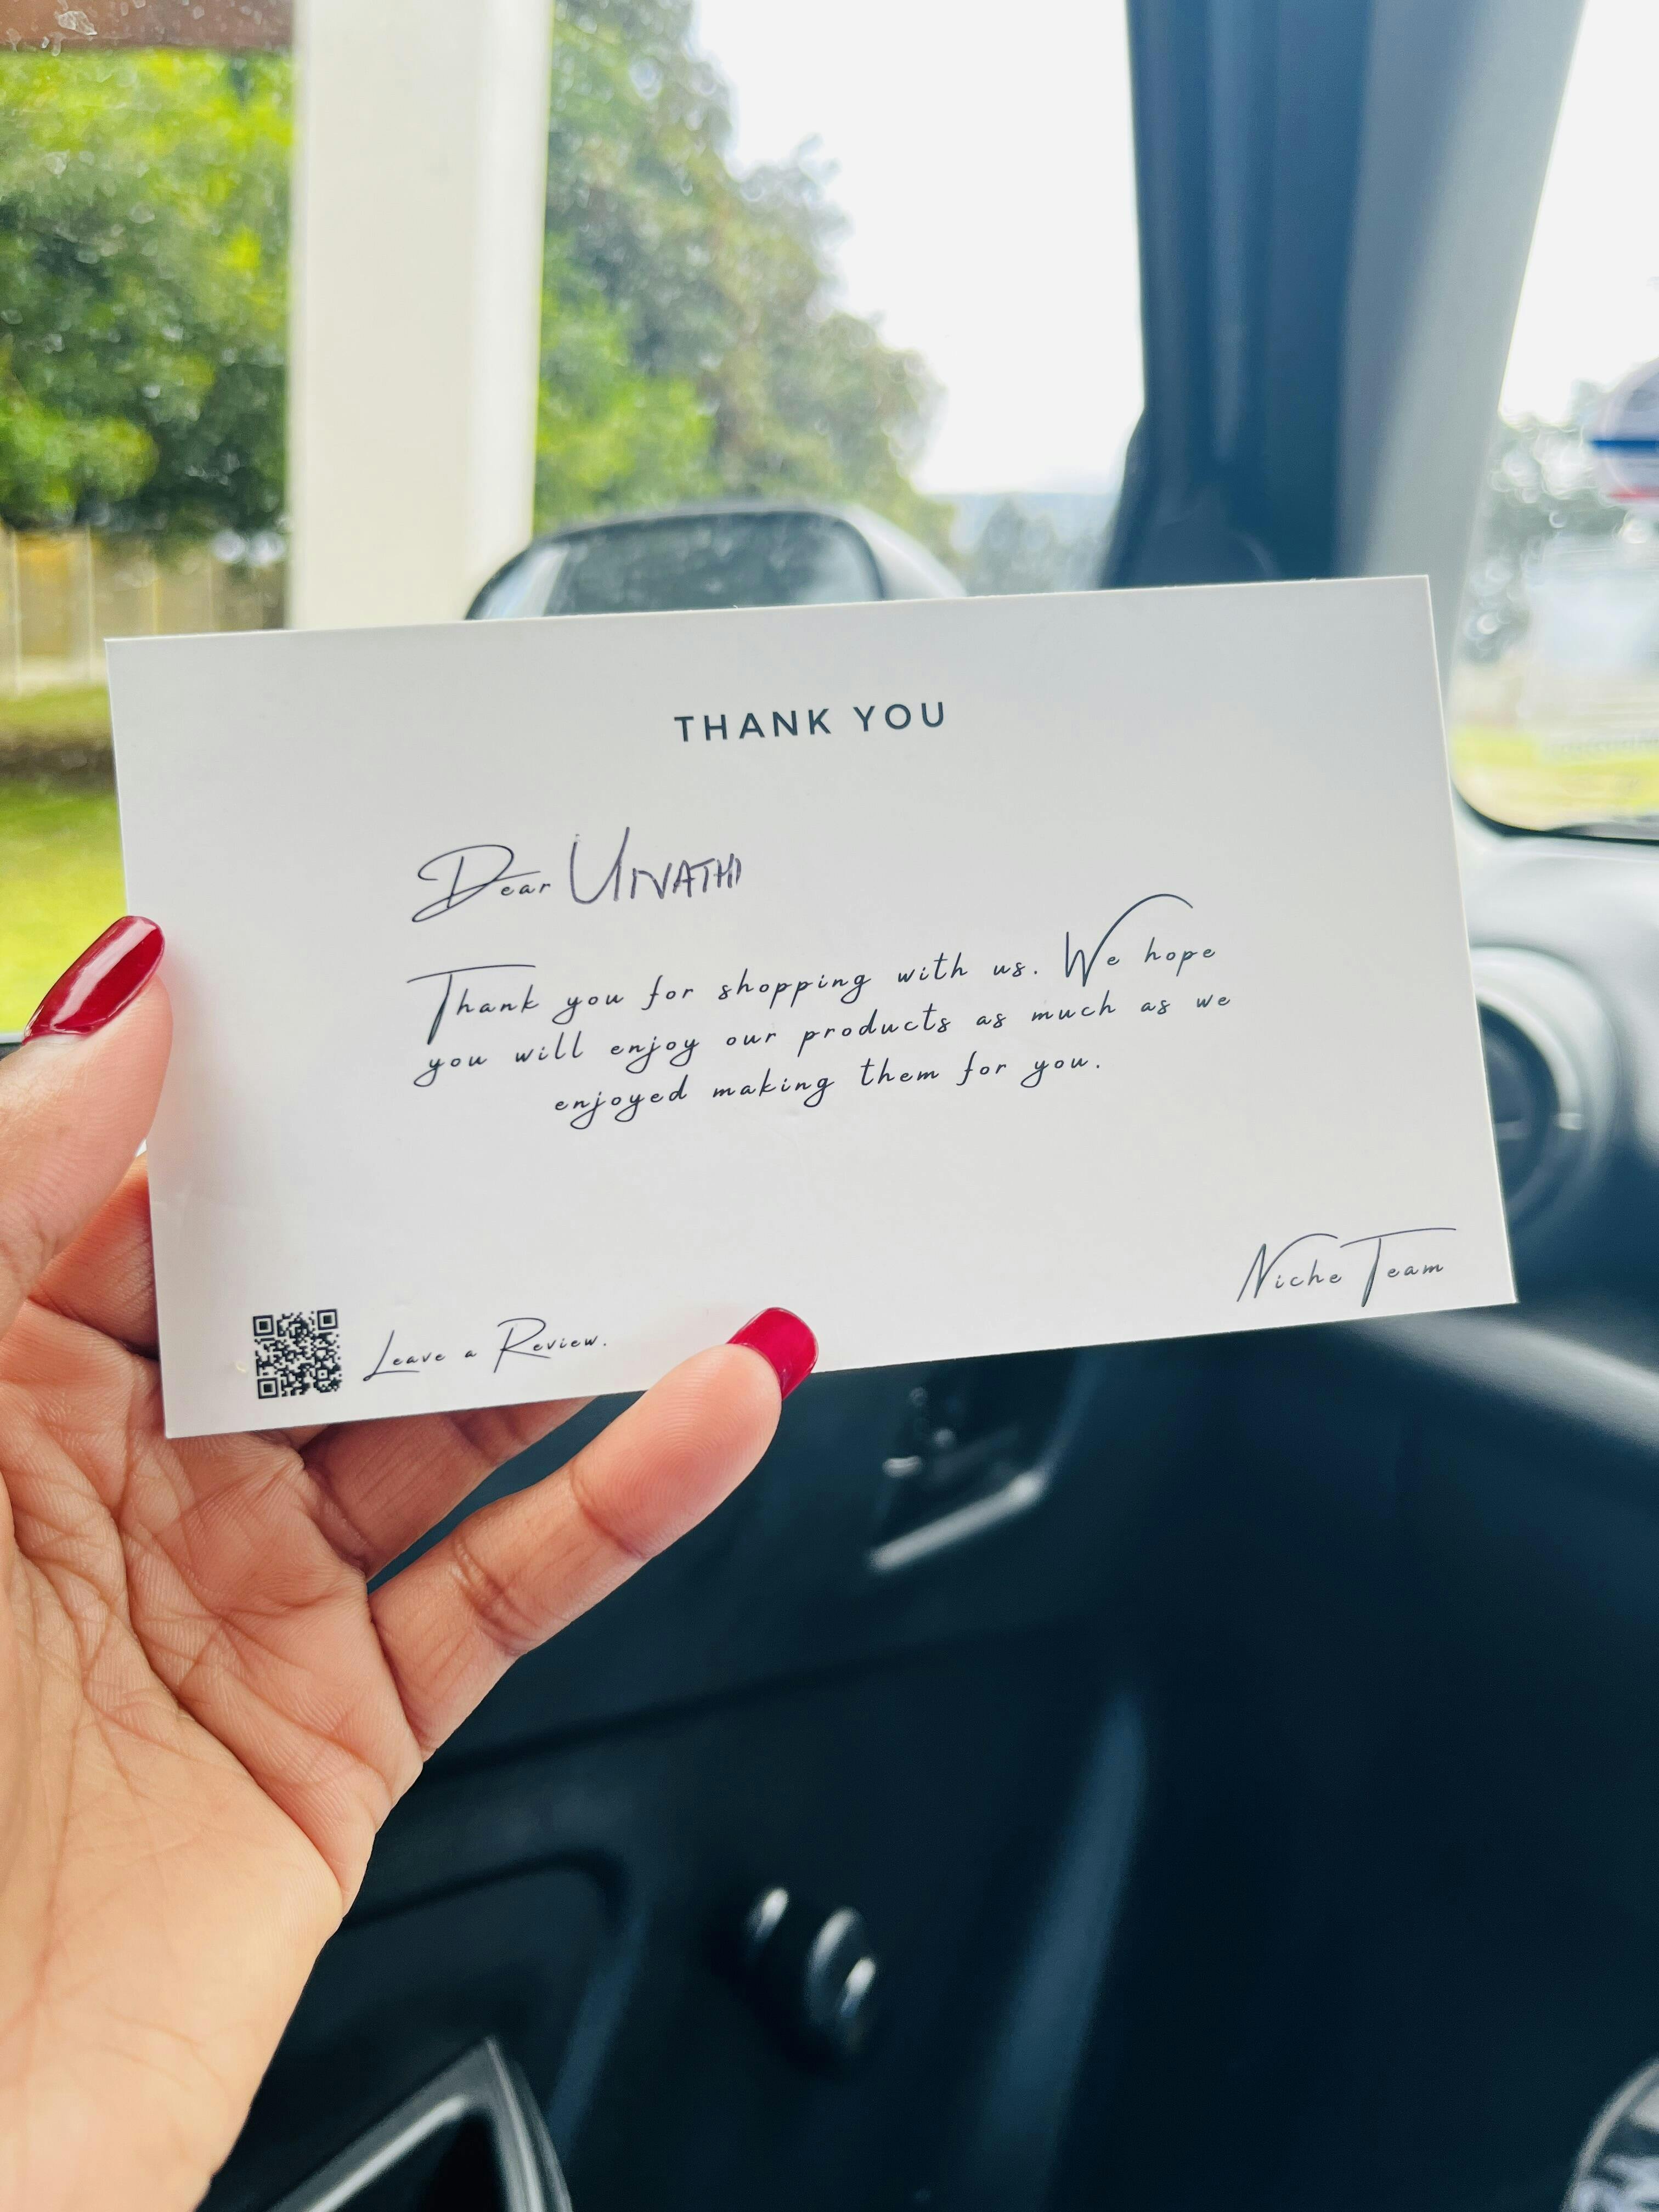 THANK YOU
Dear UNATHI
Thank you for shopping with us. We hope
you will enjoy our products as much as we
enjoyed making them for you.
Niche Team
Leave a Review.